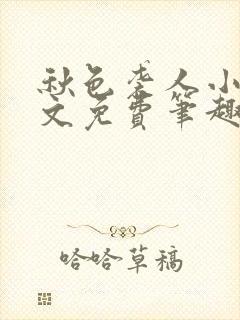 秋色袭人小
文免费笔趣
哈哈草稿